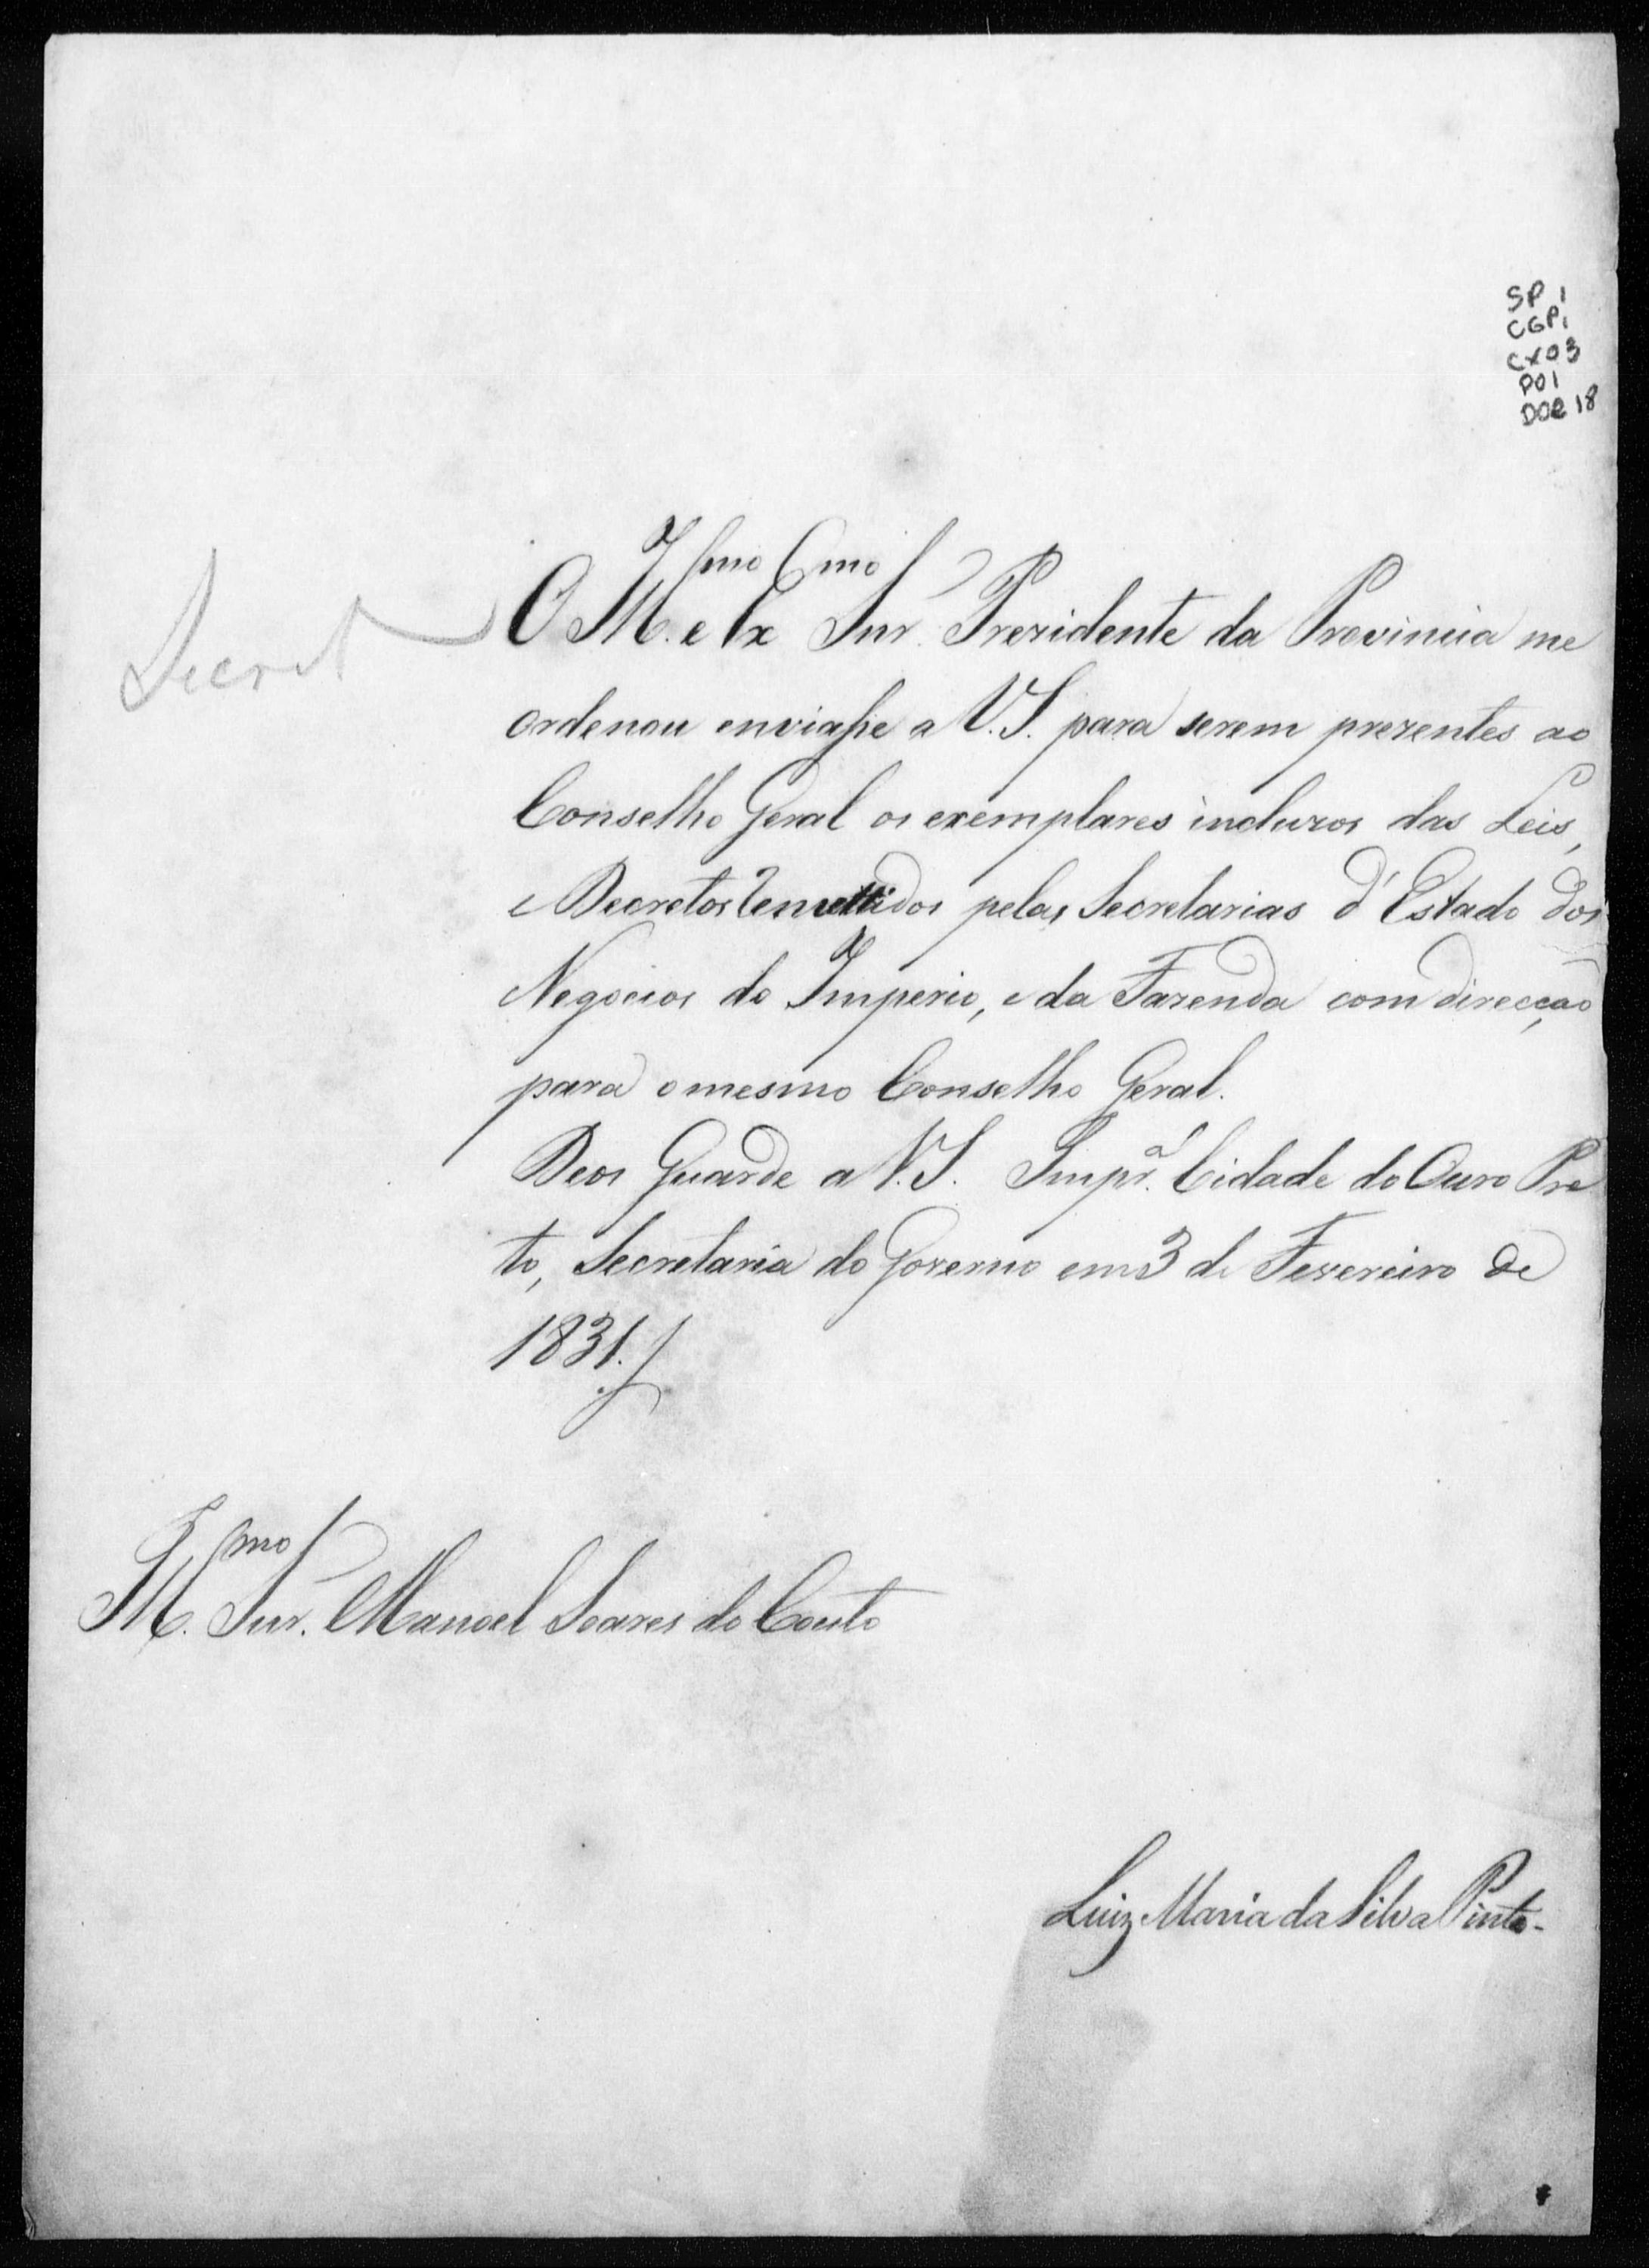 SP 1
CGP1
CX03
P01
DOC 18
Secret
O Illmo e Exmo Snr. Prezidente da Provincia me
ordenou enviasse a V.S. para serem prezentes ao
Conselho Geral os exemplares incluzos das Leis,
e Decretos remettidos pelas Secretarias d'Estado dos
Negocios do Imperio, e da Fazenda com direcção
para o mesmo Conselho Geral.
Deos Guarde a V.S. Impal. Cidade do Ouro Pre
to, Secretaria do Governo em 3 de Fevereiro de
1831./.
Illmo Snr. Manoel Soares do Couto
Luiz Maria da Silva Pinto